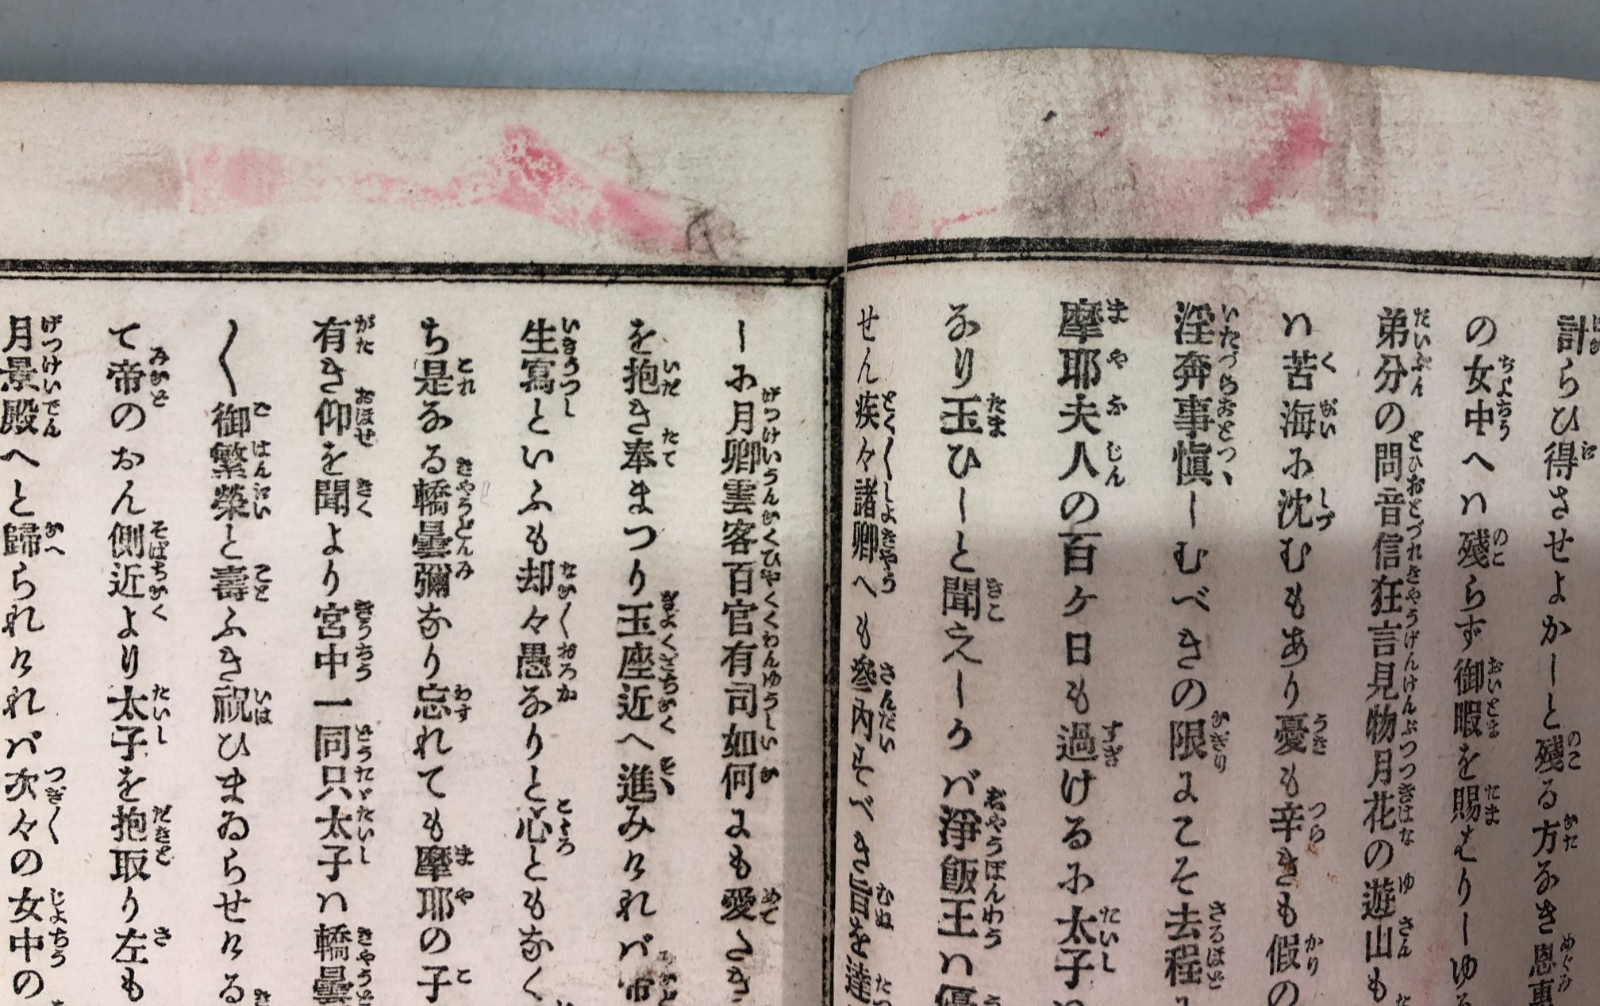 計らひ得させよかしと殘る方なき恩惠
の女中へハ殘らず御暇を賜はりしゆる
弟分の問音信狂言見物月花の遊山も
ハ苦海に沈むもあり憂も辛きも假の
淫奔事愼しむべきの限にこそ去程に
摩耶夫人の百ケ日も過けるに太子ハ
なり玉ひしと聞えしかバ淨飯王ハ優
せん疾々諸卿へも參內すべき旨を達
しに月卿雲客百官有司如何にも愛たき
を抱き奉まつり玉座近へ進みけれバ帝
生寫といふも却々愚なりと心ともなく
ち是なる轎曇彌なり忘れても摩耶の子
有き仰を聞より宮中一同只太子ハ轎曇
〱御繁榮と壽ふき祝ひまゐらせける
て帝のおん側近より太子を抱取り左も
月景殿へと歸られけれバ次々の女中の